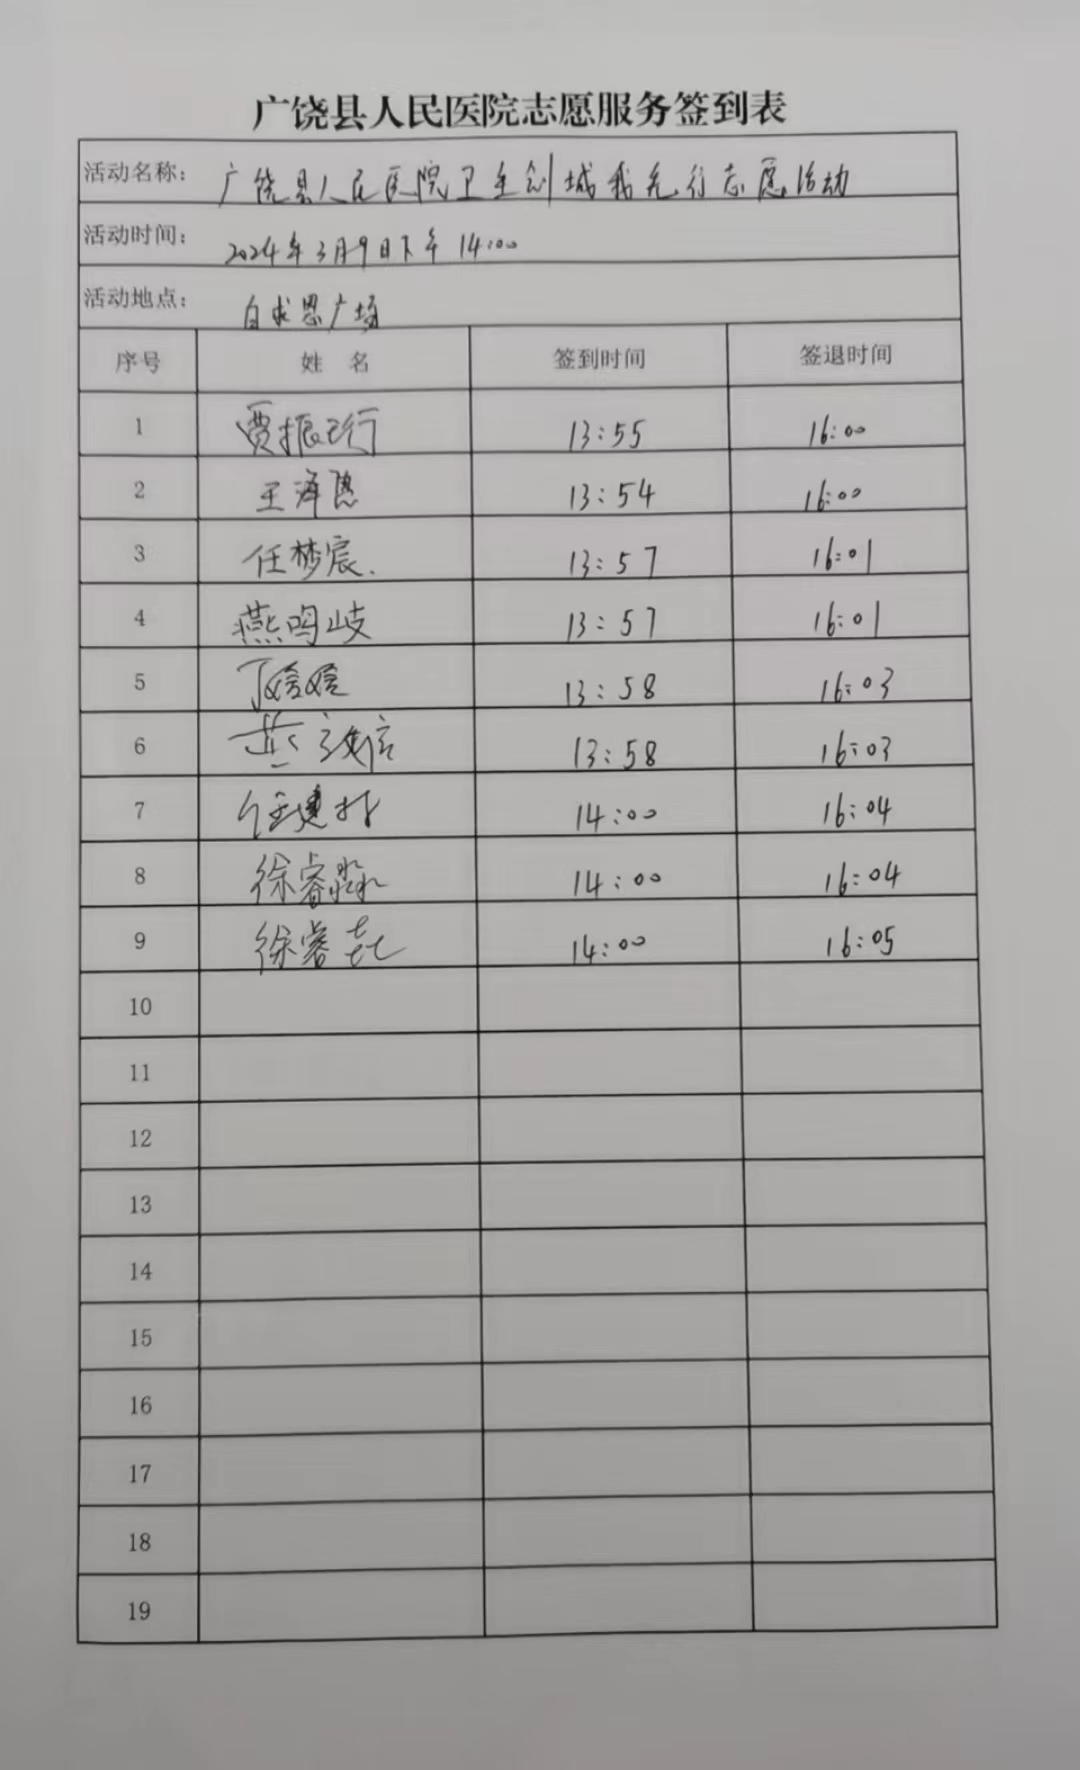 广饶县人民医院志愿服务签到表
活动名称： 广饶县人民医院卫生创城我先行志愿活动
活动时间： 2024年3月9日下午 14:00
活动地点： 白求恩广场
序号 姓 名 签到时间 签退时间
1 贾振珩 13:55 16:00
2 王泽恩 13:54 16:00
3 任梦宸. 13:57 16:01
4 燕鸣岐 13:57 16:01
5 丁晗晗 13:58 16:03
6 13:58 16:03
7 14:00 16:04
8 徐睿淼 14:00 16:04
9 徐睿 14:00 16:05
10
11
12
13
14
15
16
17
18
19